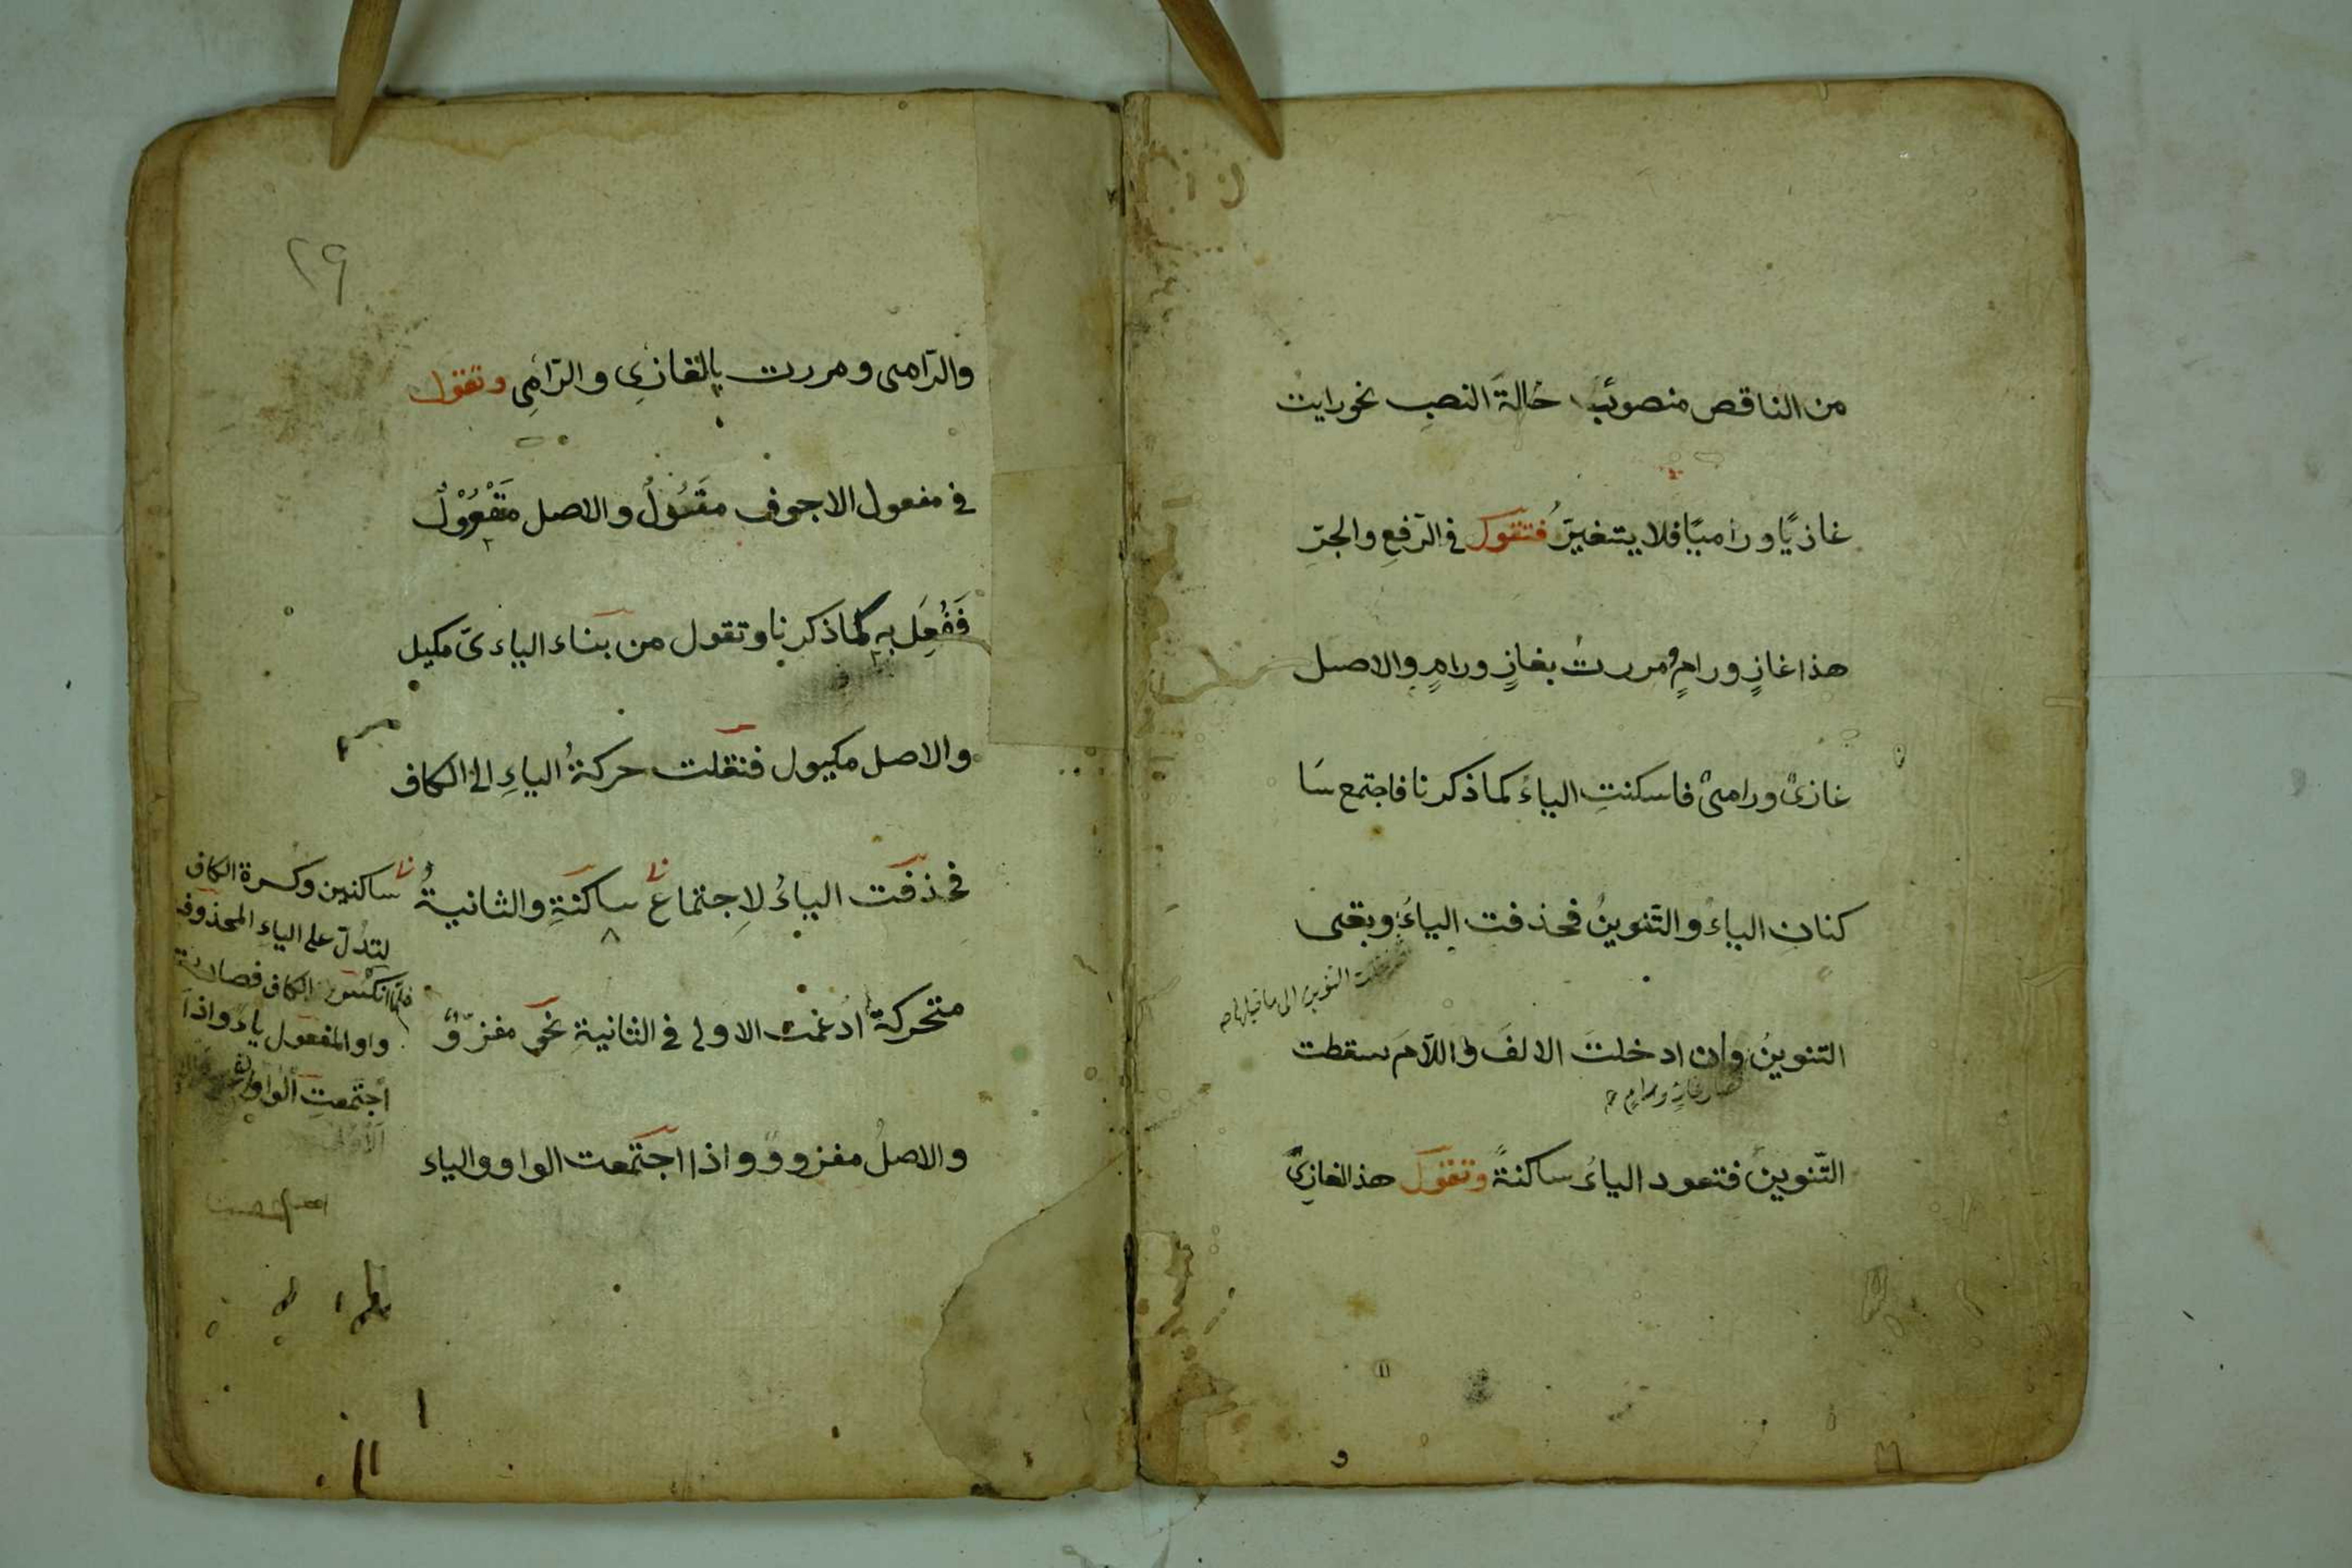 من الناقص منصوبُ حالةَ النصبِ نحو رايت
غازيًا وراميًا فلا يتغيرُ فتقول فى الرّفعِ والجرِّ
هذا غازٍ ورامٍ ومررت بغازٍ ورامٍ والاصل
غازىٌ ورامىٌ فاسكنتِ الياءُ كما ذكرنا فاجتمع سا
كنان الياءُ والتّنوينُ فحذفت الياءُ وبقى
التنوين الى ما قبلها صح
التنوينُ وان ادخلتَ الالفَ واللّامَ سقطت
صار غازٍ ورامٍ
التّنوينُ فتعود الياءُ ساكنةً وتقول هذا الغازىُ
٢٩
والرّامى ومررت بالغازىِ والرّامىِ وتقول
فى مفعول الاجوف مَقُوْلٌ والاصل مَقْوُوْلٌ
فَفُعِلَ به كما ذكرنا وتقول من بناء الياءىّ مكيل
والاصل مكيول فنقلت حركةُ الياءِ الى الكاف
فحذفت الياءُ لاِجتماع ساكنَةٍ والثانيةُ
متحركةٌ ادغمت الاولى فى الثانيةِ نحو مغزوٌّ
والاصلُ مغزووٌ واذا اجتمعت الواو والياء
ساكنين وكسرة الكاف
لتدُلّ على الياءِ المحذوفة
فلمّا انكسر الكاف فصارت
واو المفعول ياءً واذا
اجتمعتِ الواوان
الاولى